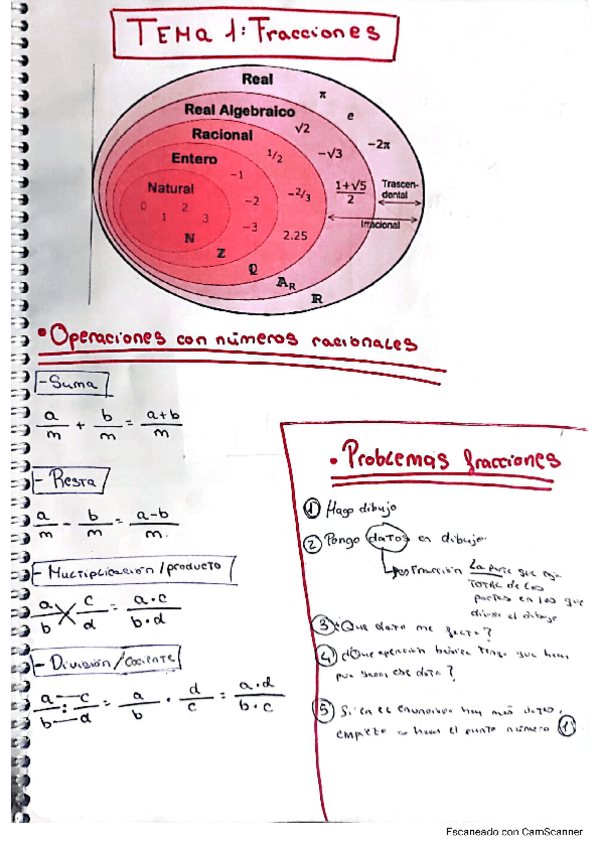 TEMA 1: Fracciones
Real
π
Real Algebraico
e
√2
Racional
-2π
1/2
-√3
Entero
-1
Natural
-2/3
1+√5
2
Trascen-
dental
0
2
-2
1
3
Irracional
-3
2.25
N
Z
Q
A_R
R
• Operaciones con números racionales
- Suma
a/m + b/m = a+b/m
- Resta
a/m - b/m = a-b/m.
- Multiplicación/producto
a/b × c/d = a·c/b·d
- División/cociente
a/b : c/d = a/b · d/c = a·d/b·c
• Problemas fracciones
① Hago dibujo
② Pongo datos en dibujo
fracción La parte que cojo
TOTAL de las
partes en las que
divido el dibujo
③ ¿Que dato me falta?
④ ¿Que operación tengo que hacer
para sacar ese dato?
⑤ Si en el enunciado hay más datos,
empiezo a hacer el punto número ①
Escaneado con CamScanner